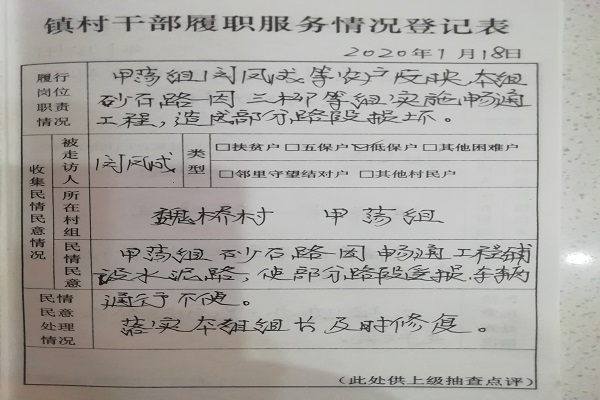 镇村干部履职服务情况登记表
2020年1月18日
履行岗位职责情况
甲荡组闵凤成等农户反映,本组
砂石路因三柳等组实施畅通
工程,造成部分路段损坏。
收集民情民意情况
被走访人
闵凤成
类型
□扶贫户 □五保户 ☑低保户 □其他困难户
□邻里守望结对户 □其他村民户
所在村组
魏桥村 甲荡组
民情民意
甲荡组砂石路因畅通工程铺
设水泥路,使部分路段受损,车辆
通行不便。
民情民意处理情况
落实本组组长及时修复。
(此处供上级抽查点评)